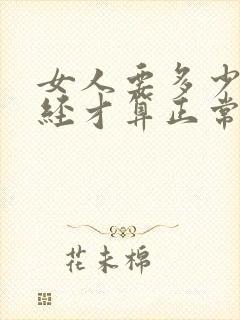 女人要多少
经才算正常
花未棉